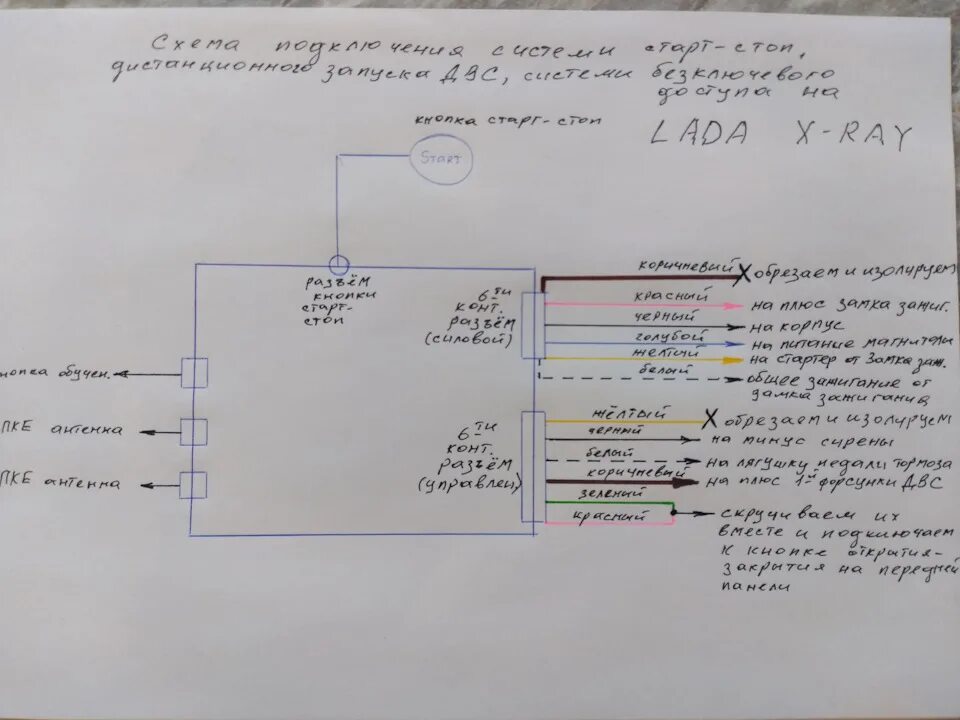 Схема подключения системы старт-стоп,
дистанционного запуска ДВС, системы безключевого
доступа на
LADA X-RAY
кнопка старт-стоп
Start
разъём
кнопки
старт-
стоп
6-ти
конт.
разъём
(силовой)
коричневый X обрезаем и изолируем
красный на плюс замка зажиг.
черный на корпус
голубой на питание магнитолы
жёлтый на стартер от замка заж.
белый общее зажигание от
замка зажигания
нопка обучен.
ПКЕ антенна
ПКЕ антенна
6-ти
конт.
разъём
(управлен)
жёлтый X обрезаем и изолируем
черный на минус сирены
белый на лягушку педали тормоза
коричневый на плюс 1-й форсунки ДВС
зеленый
красный скручиваем их
вместе и подключаем
к кнопке открытия-
закрытия на передней
панели